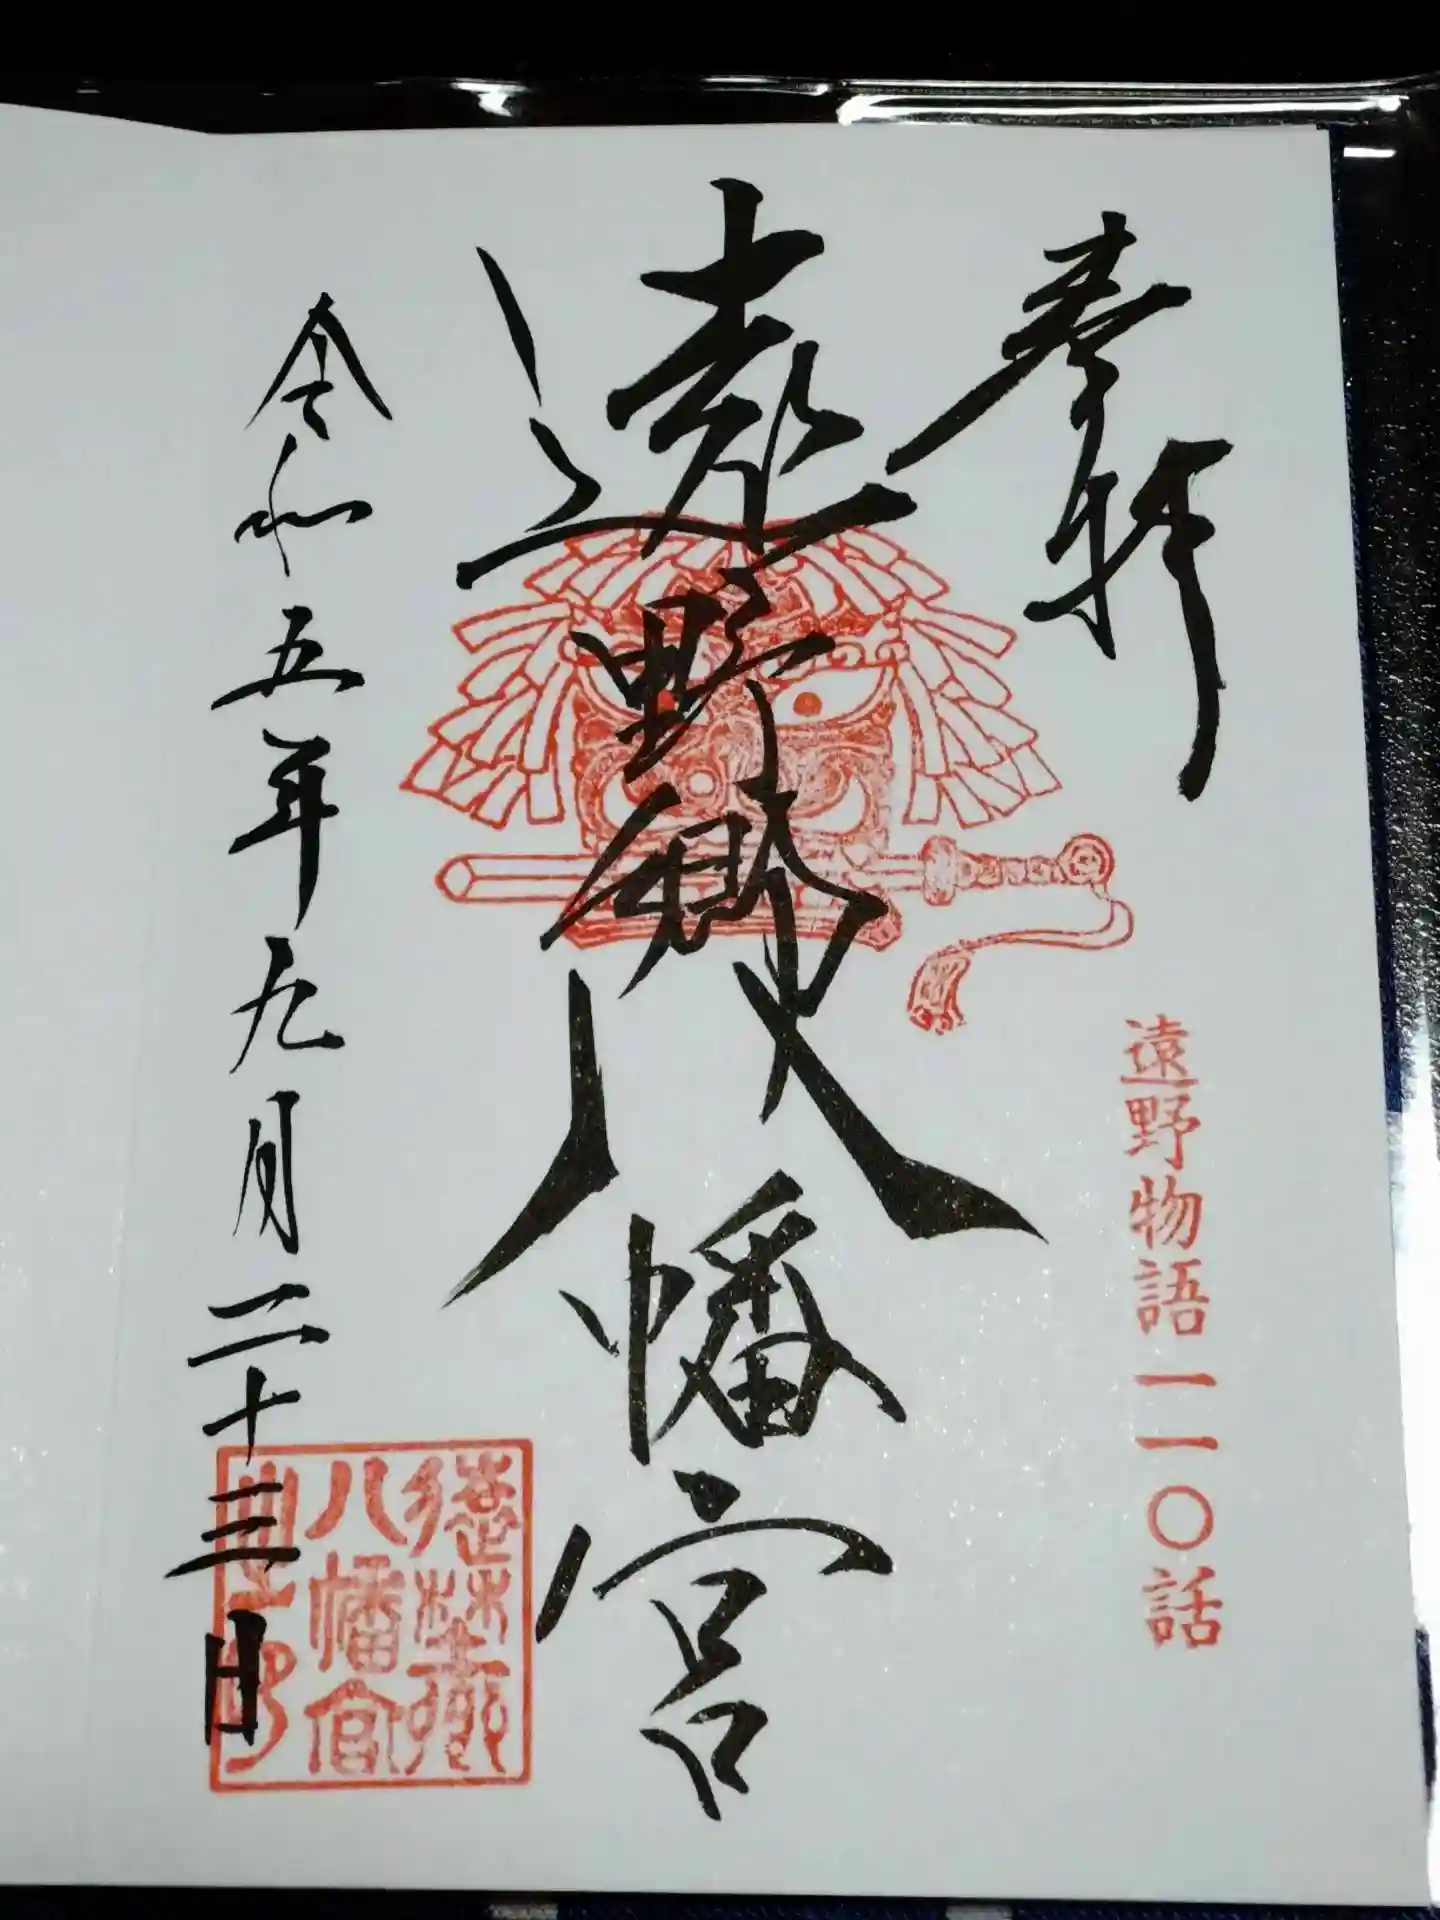 奉拝
遠野物語一一〇話
遠野郷八幡宮
遠野郷
八幡宮
令和五年九月二十三日